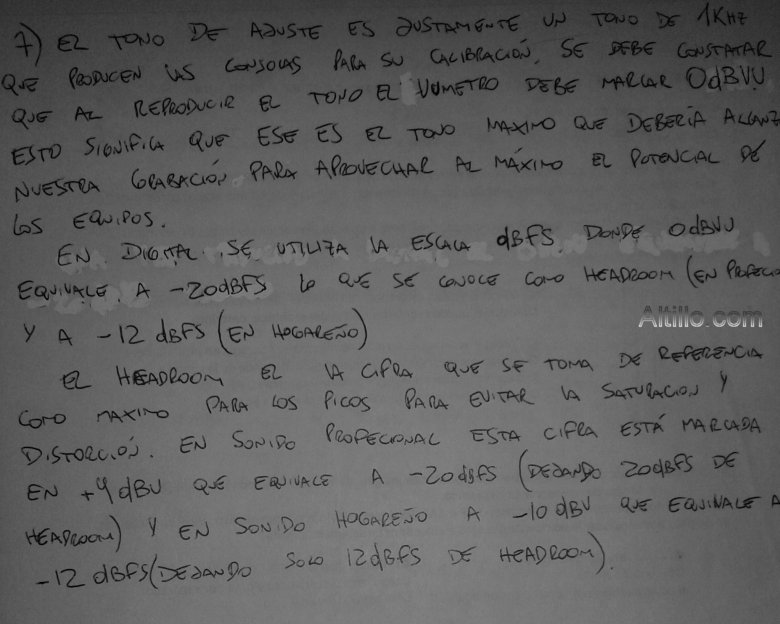 7) EL TONO DE AJUSTE ES JUSTAMENTE UN TONO DE 1KHZ
QUE PRODUCEN LAS CONSOLAS PARA SU CALIBRACIÓN, SE DEBE CONSTATAR
QUE AL REPRODUCIR EL TONO EL VUMETRO DEBE MARCAR 0dBVU
ESTO SIGNIFICA QUE ESE ES EL TONO MAXIMO QUE DEBERÍA ALCANZ
NUESTRA GRABACIÓN PARA APROVECHAR AL MÁXIMO EL POTENCIAL DE
LOS EQUIPOS.
EN DIGITAL SE UTILIZA LA ESCALA dBFS, DONDE 0dBVU
EQUIVALE A -20dBFS LO QUE SE CONOCE COMO HEADROOM (EN PROFECION
Y A -12 dBFS (EN HOGAREÑO)
Altillo.com
EL HEADROOM EL LA CIFRA QUE SE TOMA DE REFERENCIA
COMO MAXIMO PARA LOS PICOS PARA EVITAR LA SATURACION Y
DISTORCIÓN. EN SONIDO PROFECIONAL ESTA CIFRA ESTÁ MARCADA
EN +4dBU QUE EQUIVALE A -20dBFS (DEJANDO 20dBFS DE
HEADROOM) Y EN SONIDO HOGAREÑO A -10dBV QUE EQUIVALE A
-12 dBFS (DEJANDO SOLO 12dBFS DE HEADROOM).